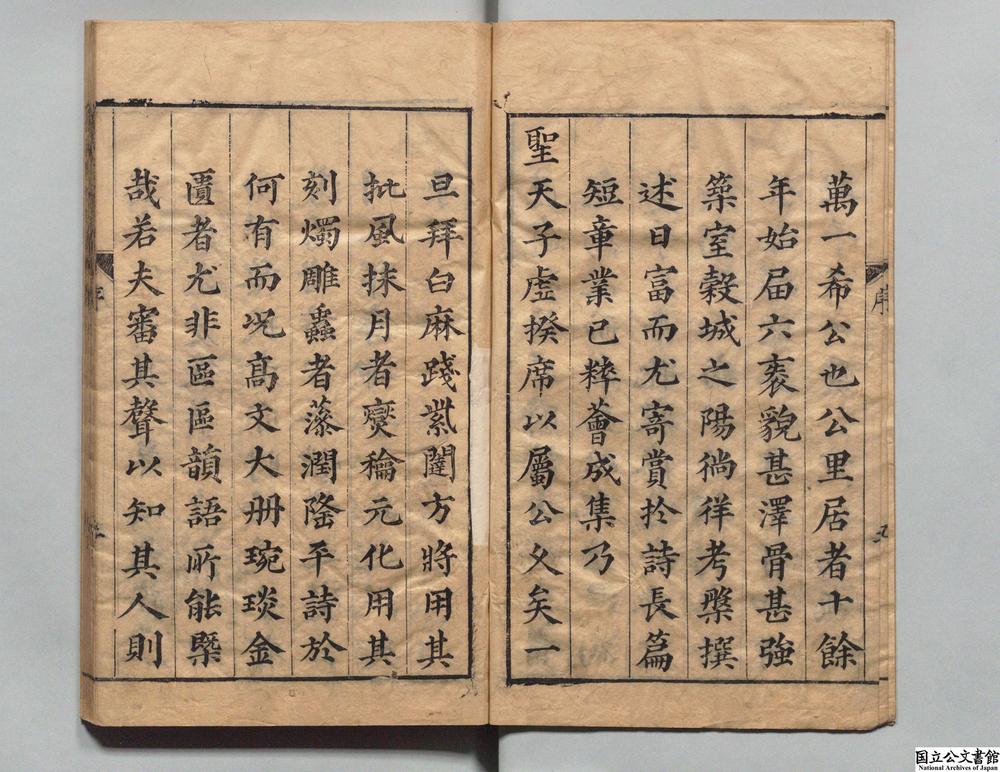 萬一希公也公里居者十餘
年始屆六袠貌甚澤骨甚強
築室穀城之陽徜徉考槃撰
述日富而尤寄賞於詩長篇
短章業已粹薈成集乃
聖天子虛揆席以屬公久矣一
序
旦拜白麻踐紫闥方將用其
批風抹月者爕龢元化用其
刻燭雕蟲者藻潤隆平詩於
何有而况高文大册琬琰金
匱者尤非區區韻語所能槩
哉若夫審其聲以知其人則
国立公文書館
National Archives of Japan